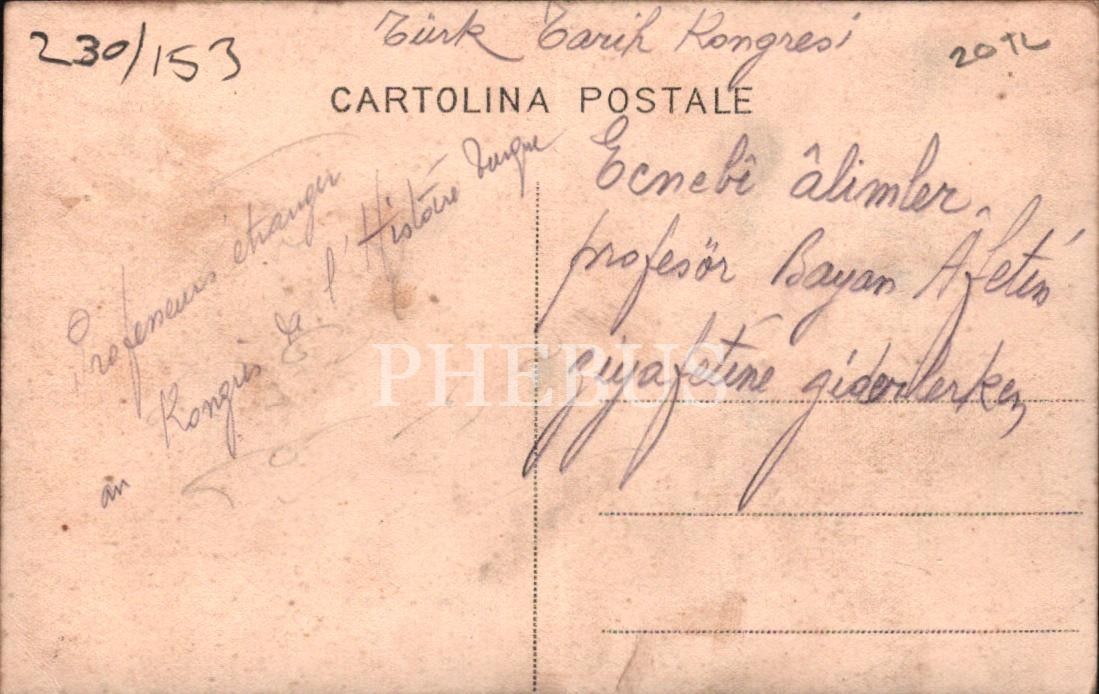 230/153
Türk Tarih Kongresi
20 TL
CARTOLINA POSTALE
Profeseurs étranger
au Kongrès de l'Histoire Turque
Ecnebî âlimler
profesör Bayan Afetin
ziyafetine giderlerken
PHEBUS